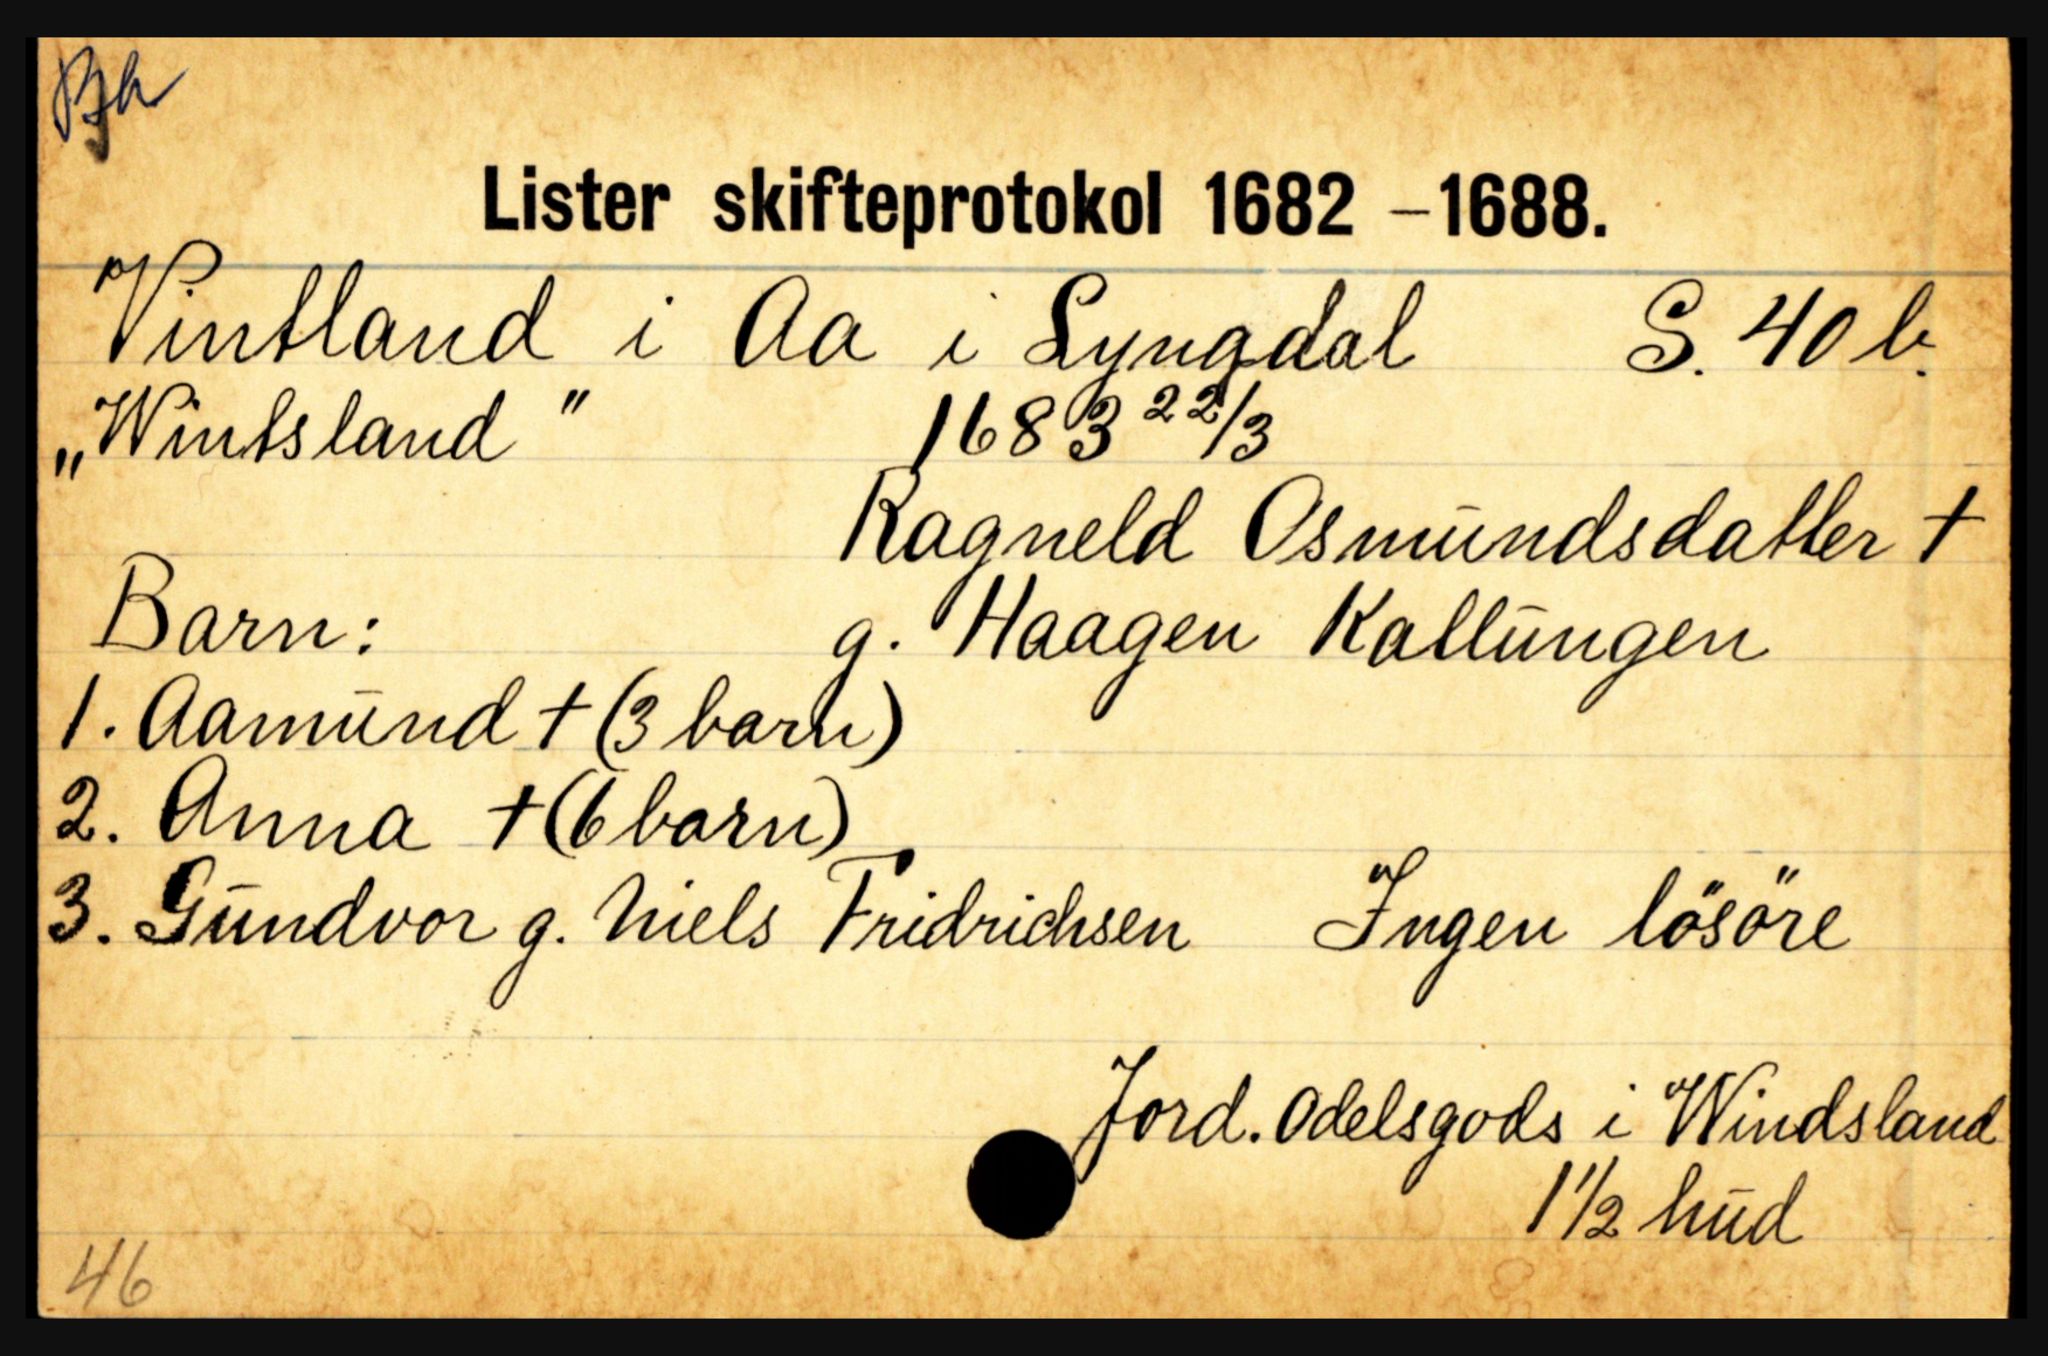 Lister skifteprotokol 1682 – 1688.
Vintland i Aa i Lyngdal S. 40 b.
„Wintsland" 1683 22/3
Ragneld Osmundsdatter †
Barn: g. Haagen Kallungen
1. Aamund † (3 barn)
2. Anna † (6 barn)
3. Gundvor g. Niels Fridrichsen Ingen lösöre
Jord. Odelsgods i Windsland
1 1/2 hud
46